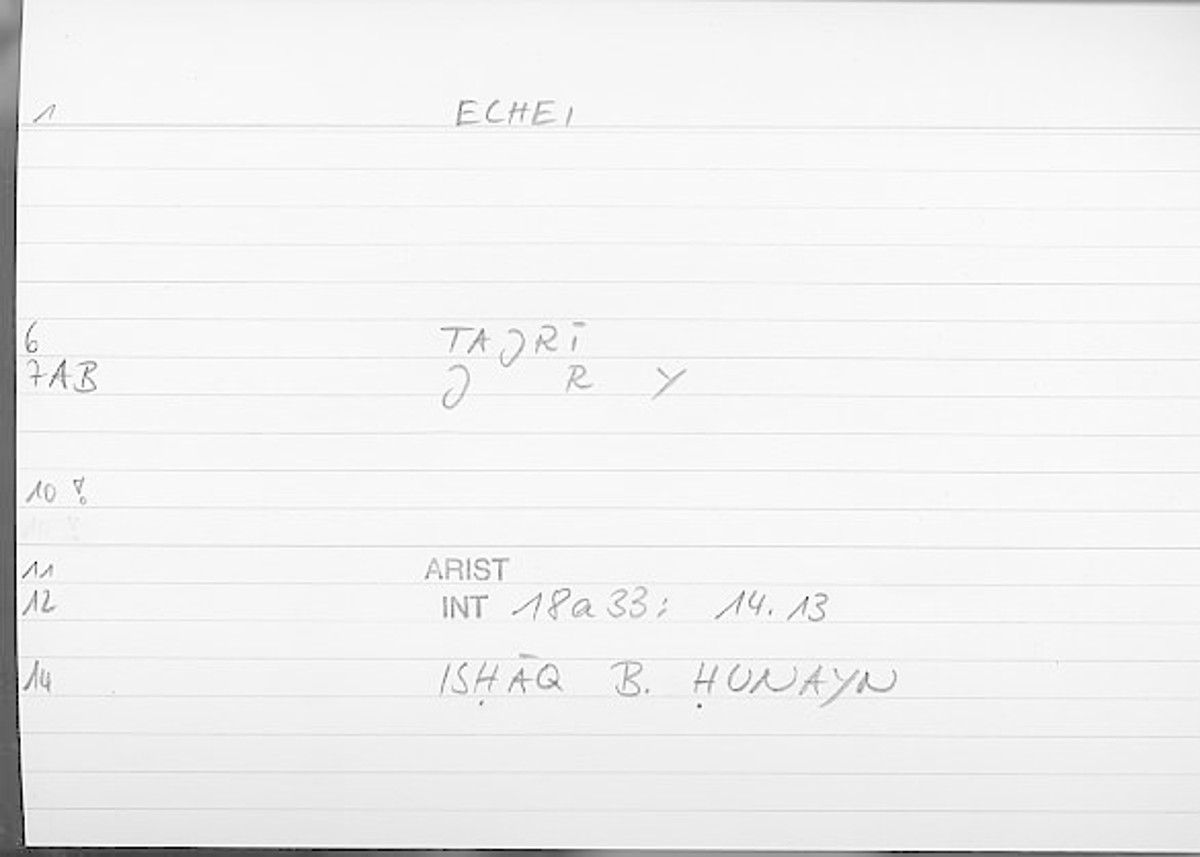 1 ECHEI
6 TAJRĪ
7AB J R Y
10 !
11 ARIST
12 INT 18a33; 14.13
14 ISḤĀQ B. ḤUNAYN